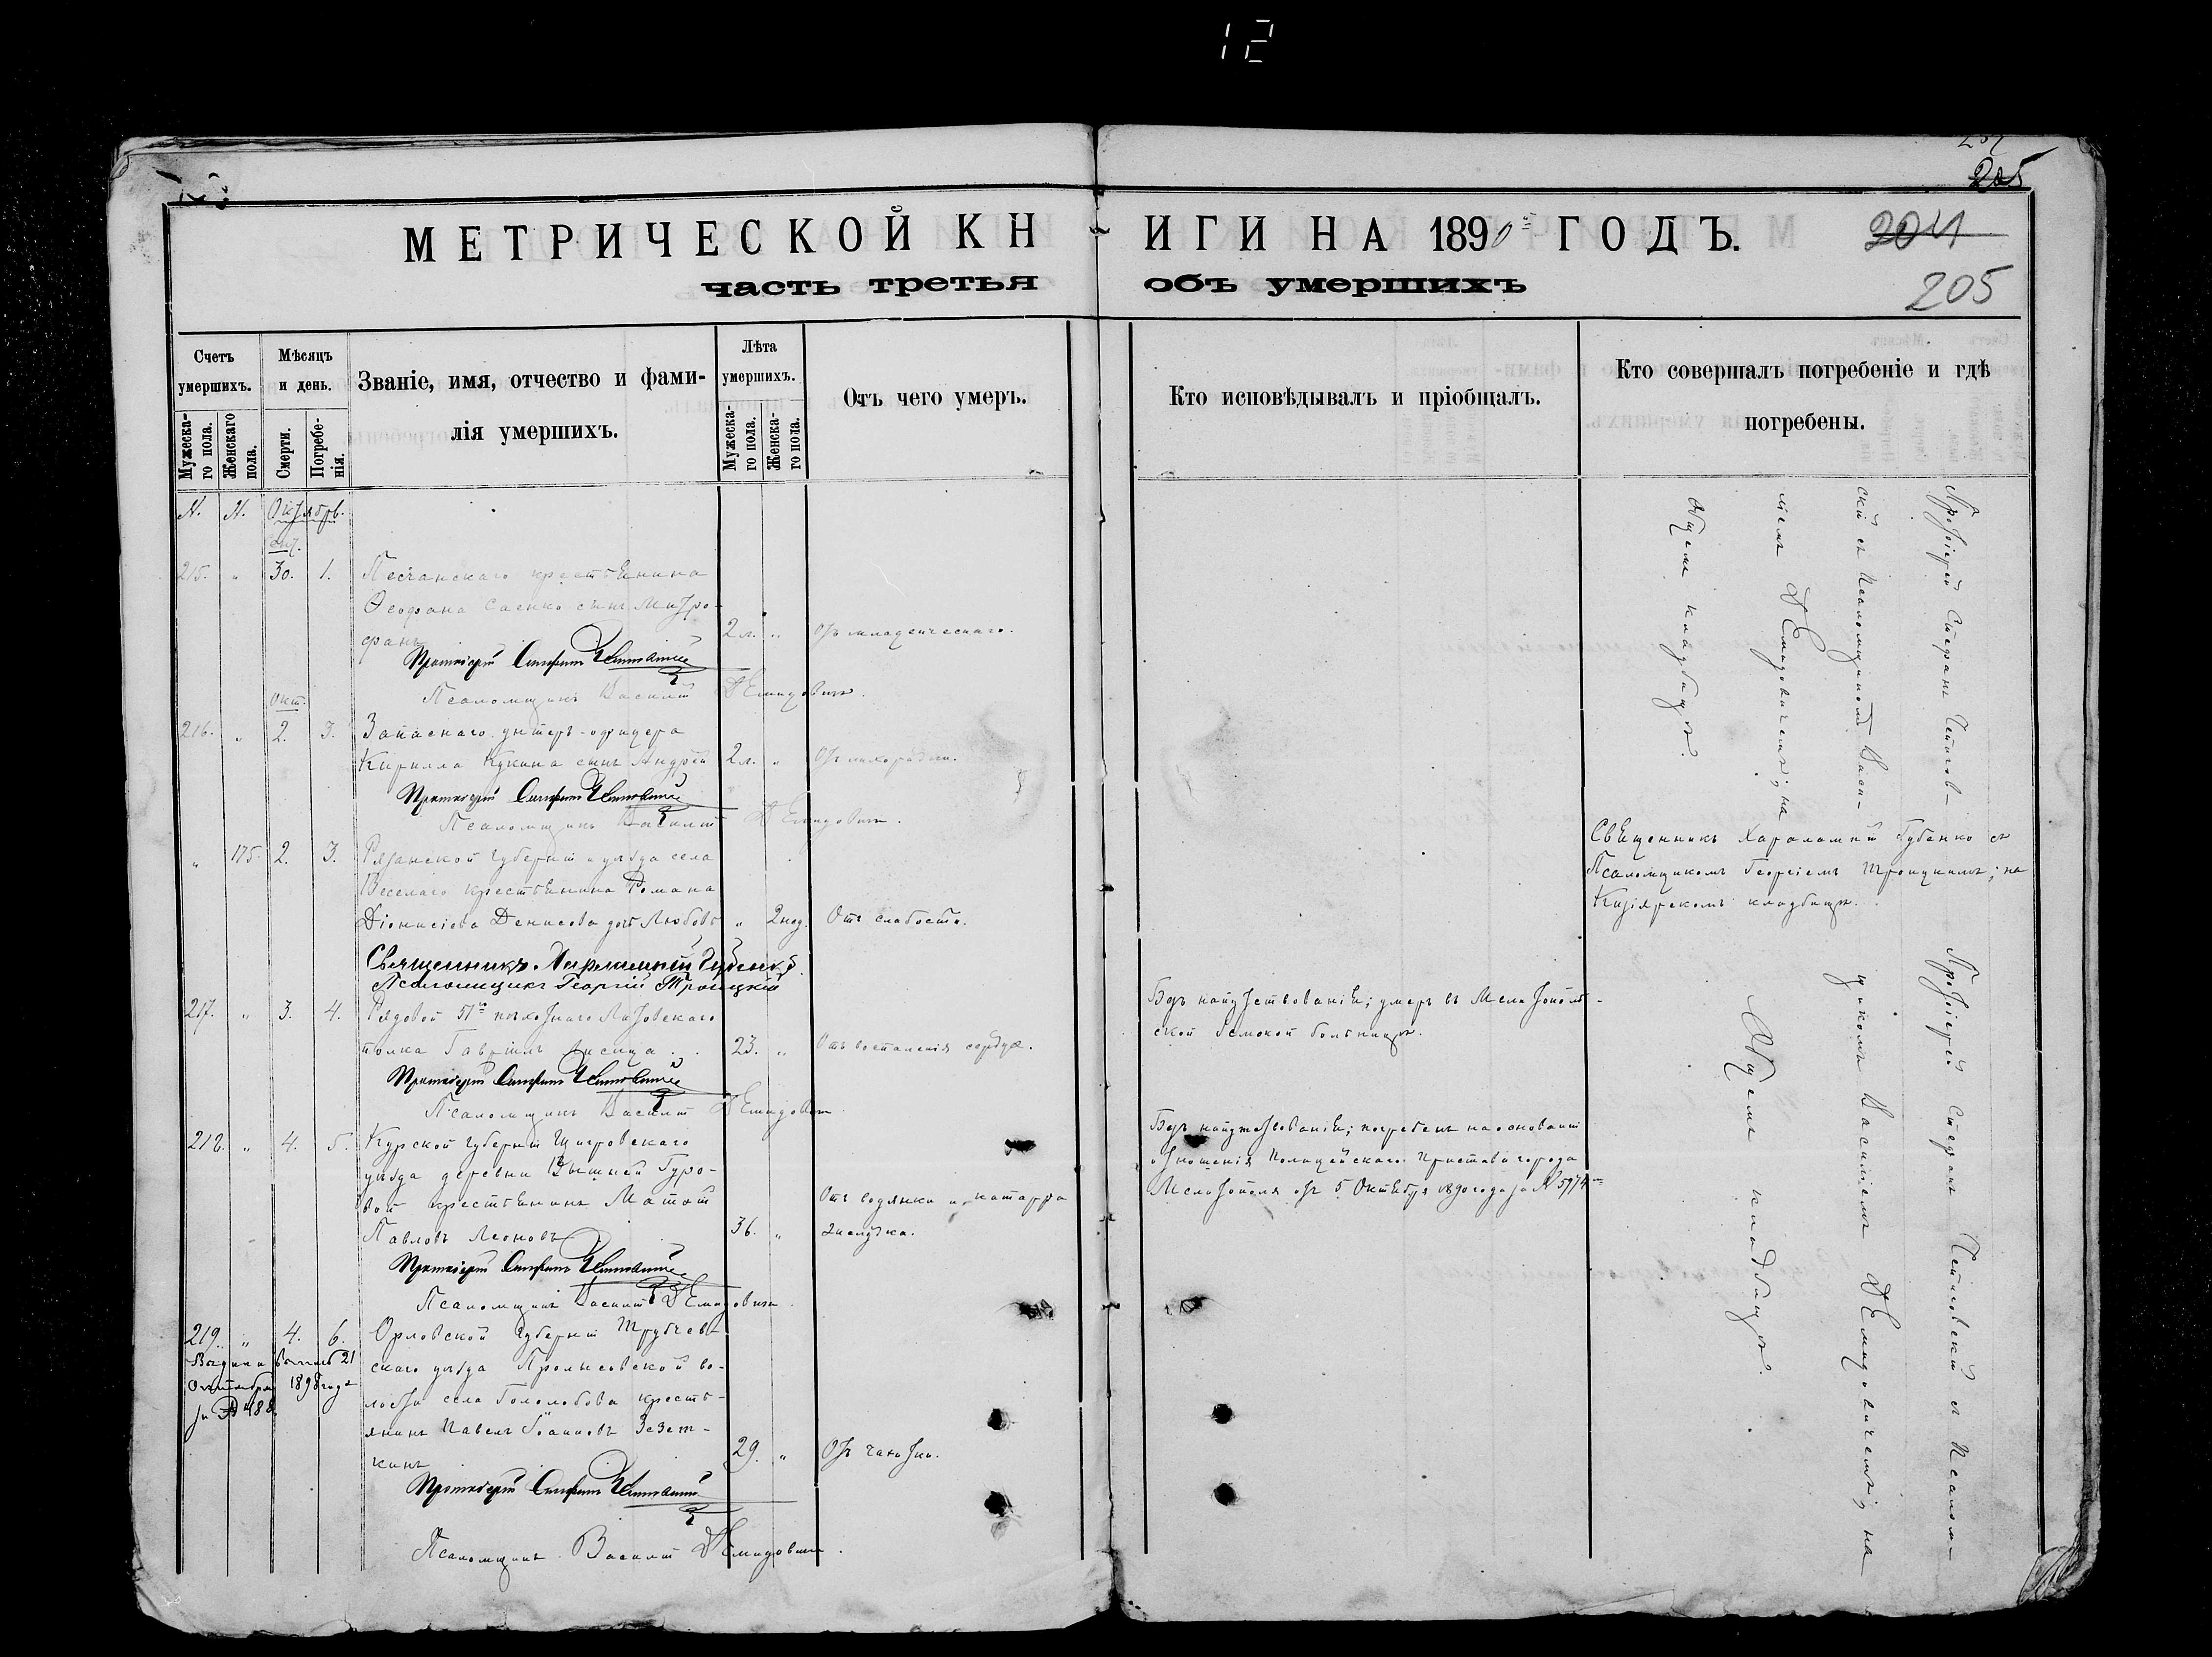 12
205
МЕТРИЧЕСКОЙ КНИГИ НА 1890й ГОДЪ.
204
часть третья объ умершихъ
205
Счетъ умершихъ.
Мужеска-го пола.
Женскаго пола.
Мѣсяцъ и день.
Смерти.
Погребе-нія.
Званіе, имя, отчество и фами-
лія умершихъ.
Лѣта умершихъ.
Мужеска-го пола.
Женска-го пола.
Отъ чего умеръ.
Кто исповѣдывалъ и пріобщалъ.
Кто совершалъ погребеніе и гдѣ
погребены.
N. N. Октябрь.
Сент.
215. „ 30. 1. Песчанскаго крестьянина
Ѳеофана Саенко сынъ Митро-
фанъ 2 л. „ Отъ младенческаго.
Протоіерей Стефанъ
Псаломщикъ Василій Демидовичъ.
Окт.
216. „ 2. 3. Запаснаго унтеръ-офицера
Кирилла Кукина сынъ Андрей 2 л. „ Отъ лихорадки.
Протоіерей Стефанъ
Псаломщикъ Василій Демидовичъ.
„ 175. 2. 3. Рязанской губерніи и уѣзда села
Веселаго крестьянина Романа
Діонисіева Денисова дочь Любовь „ 2 нед. Отъ слабости.
Священникъ Харалампій Губенко
Псаломщикъ Георгій Троицкій
217. „ 3. 4. Рядовой 51го пѣхотнаго Литовскаго
полка Гавріилъ Лисица 23. „ Отъ воспаленія сердца.
Протоіерей Стефанъ
Псаломщикъ Василій Демидовичъ
218. „ 4. 5. Курской губерніи Щигровскаго
уѣзда деревни Вышней Гуро-
вой крестьянинъ Матѳій
Павловъ Леоновъ 36. „ Отъ водянки и катарра
желудка.
Протоіерей Стефанъ
Псаломщикъ Василій Демидовичъ
219. „ 4. 6. Орловской губерніи Трубчев-
скаго уѣзда во-
лости села Гололобова кресть-
янинъ Павелъ Іоанновъ
кинъ 29. „ Отъ чахотки.
21
1898 года
за № 188.
Протоіерей Стефанъ
Псаломщикъ Василій Демидовичъ.
Безъ напутствованія; умеръ въ Мелитополь-
ской земской больницѣ.
Безъ напутствованія; погребенъ на основаніи
отношенія Полицейскаго Пристава города
Мелитополя отъ 5 Октября 1890 года за № 5974
Протоіерей Стефанъ
скій съ Псаломщикомъ Васи-
ліемъ Демидовичемъ; на
общемъ кладбищѣ.
Священникъ Харалампій Губенко съ
Псаломщикомъ Георгіемъ Троицкимъ; на
Кизіярскомъ кладбищѣ.
Протоіерей Стефанъ съ Псалом-
щикомъ Василіемъ Демидовичемъ; на
общемъ кладбищѣ.